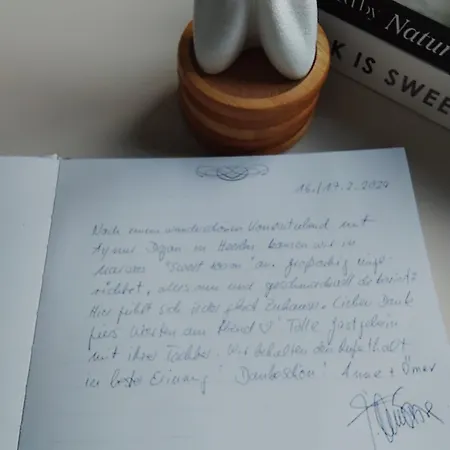 by Natur
K IS SWEE
16./17.2.2024
Nach einem wunderschönen Konzertabend mit
in kamen wir in
"Sweet Room" an. Großartig einge-
richtet, alles neu und geschmackvoll
Hier fühlt sich jeder Zuhause. Lieben Dank
fürs Warten am Abend ♡! Tolle Gastgeberin
mit ihrer Tochter. Wir behalten den Aufenthalt
in beste Erinnerung! Dankeschön! Anne + Ömer